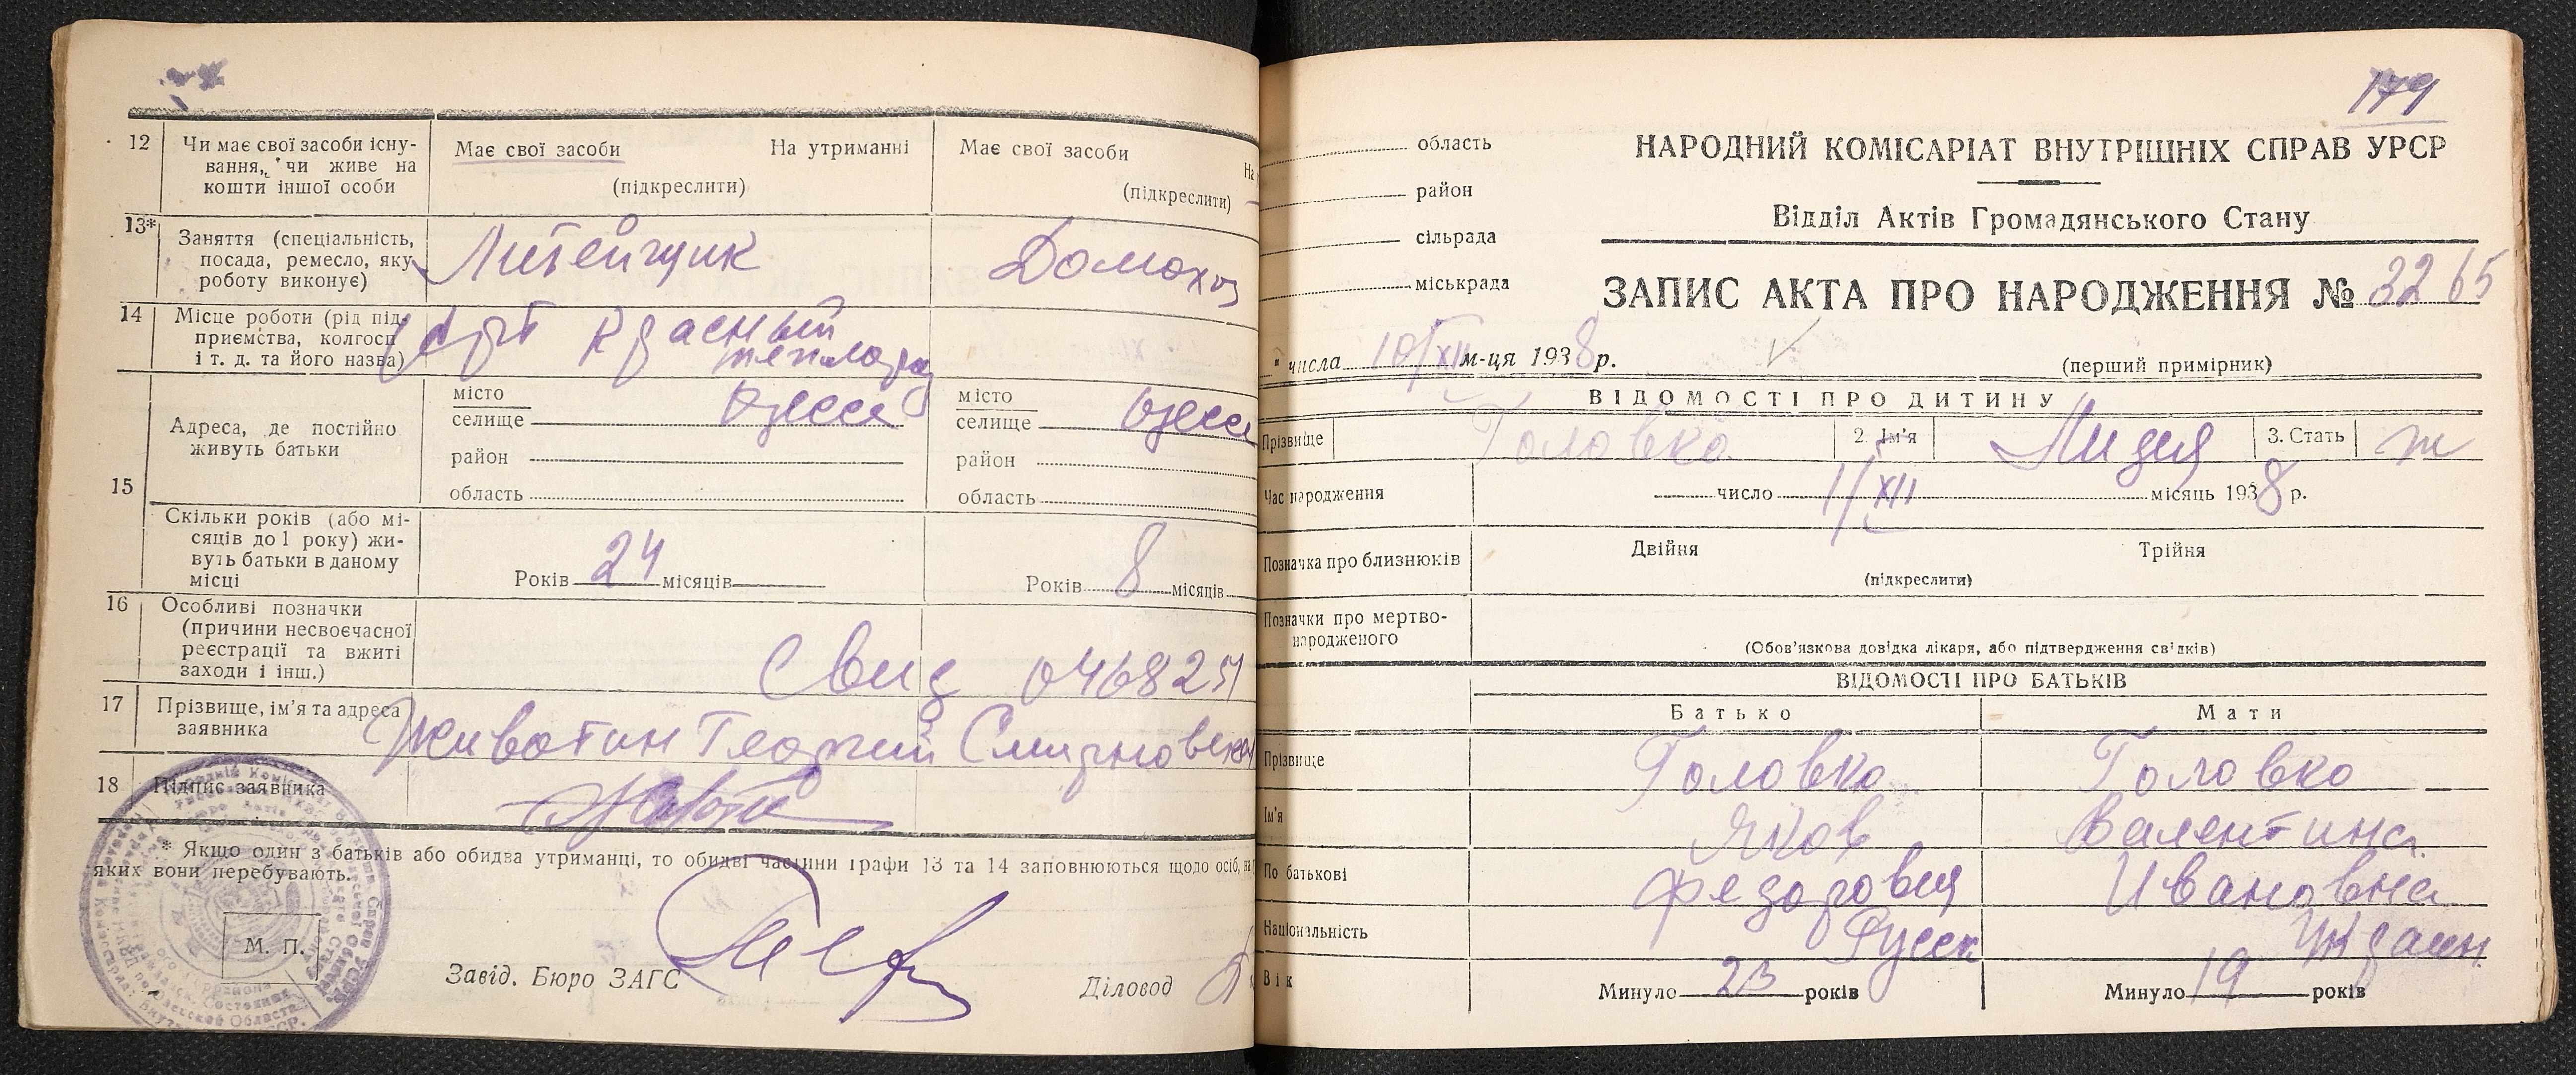 12
Чи має свої засоби існу-
вання, чи живе на
кошти іншої особи
Має свої засоби
На утриманні
(підкреслити)
Має свої засоби
На
(підкреслити)
13*
Заняття (спеціальність,
посада, ремесло, яку
роботу виконує)
Литейщик
Домохоз
14
Місце роботи (рід під-
приємства, колгосп
і т. д. та його назва)
Арт Красный
15
Адреса, де постійно
живуть батьки
місто
селище Одесса
район
область
місто
селище Одесса
район
область
Скільки років (або мі-
сяців до 1 року) жи-
вуть батьки в даному
місці
Років 24 місяців
Років 8 місяців
16
Особливі позначки
(причини несвоєчасної
реєстрації та вжиті
заходи і інш.)
Свид 0468251
17
Прізвище, ім'я та адреса
заявника
Животин Георгий
18
Підпис заявника
* Якщо один з батьків або обидва утриманці, то обидві частини графи 13 та 14 заповнюються щодо осіб, на
яких вони перебувають.
М. П.
Завід. Бюро ЗАГС
Діловод
179
область
район
сільрада
міськрада
НАРОДНИЙ КОМІСАРІАТ ВНУТРІШНІХ СПРАВ УРСР
Відділ Актів Громадянського Стану
ЗАПИС АКТА ПРО НАРОДЖЕННЯ № 3265
" числа 10/XII м-ця 1938 р.
(перший примірник)
ВІДОМОСТІ ПРО ДИТИНУ
Прізвище Головко 2. Ім'я Лидия 3. Стать ж
Час народження число 1/XII місяць 1938 р.
Позначка про близнюків
Двійня
Трійня
(підкреслити)
Позначки про мертво-
народженого
(Обов'язкова довідка лікаря, або підтвердження свідків)
ВІДОМОСТІ ПРО БАТЬКІВ
Батько
Мати
Прізвище Головко Головко
Ім'я Яков Валентина
По батькові Федорович Ивановна
Національність Русск Украин.
Вік Минуло 23 років Минуло 19 років